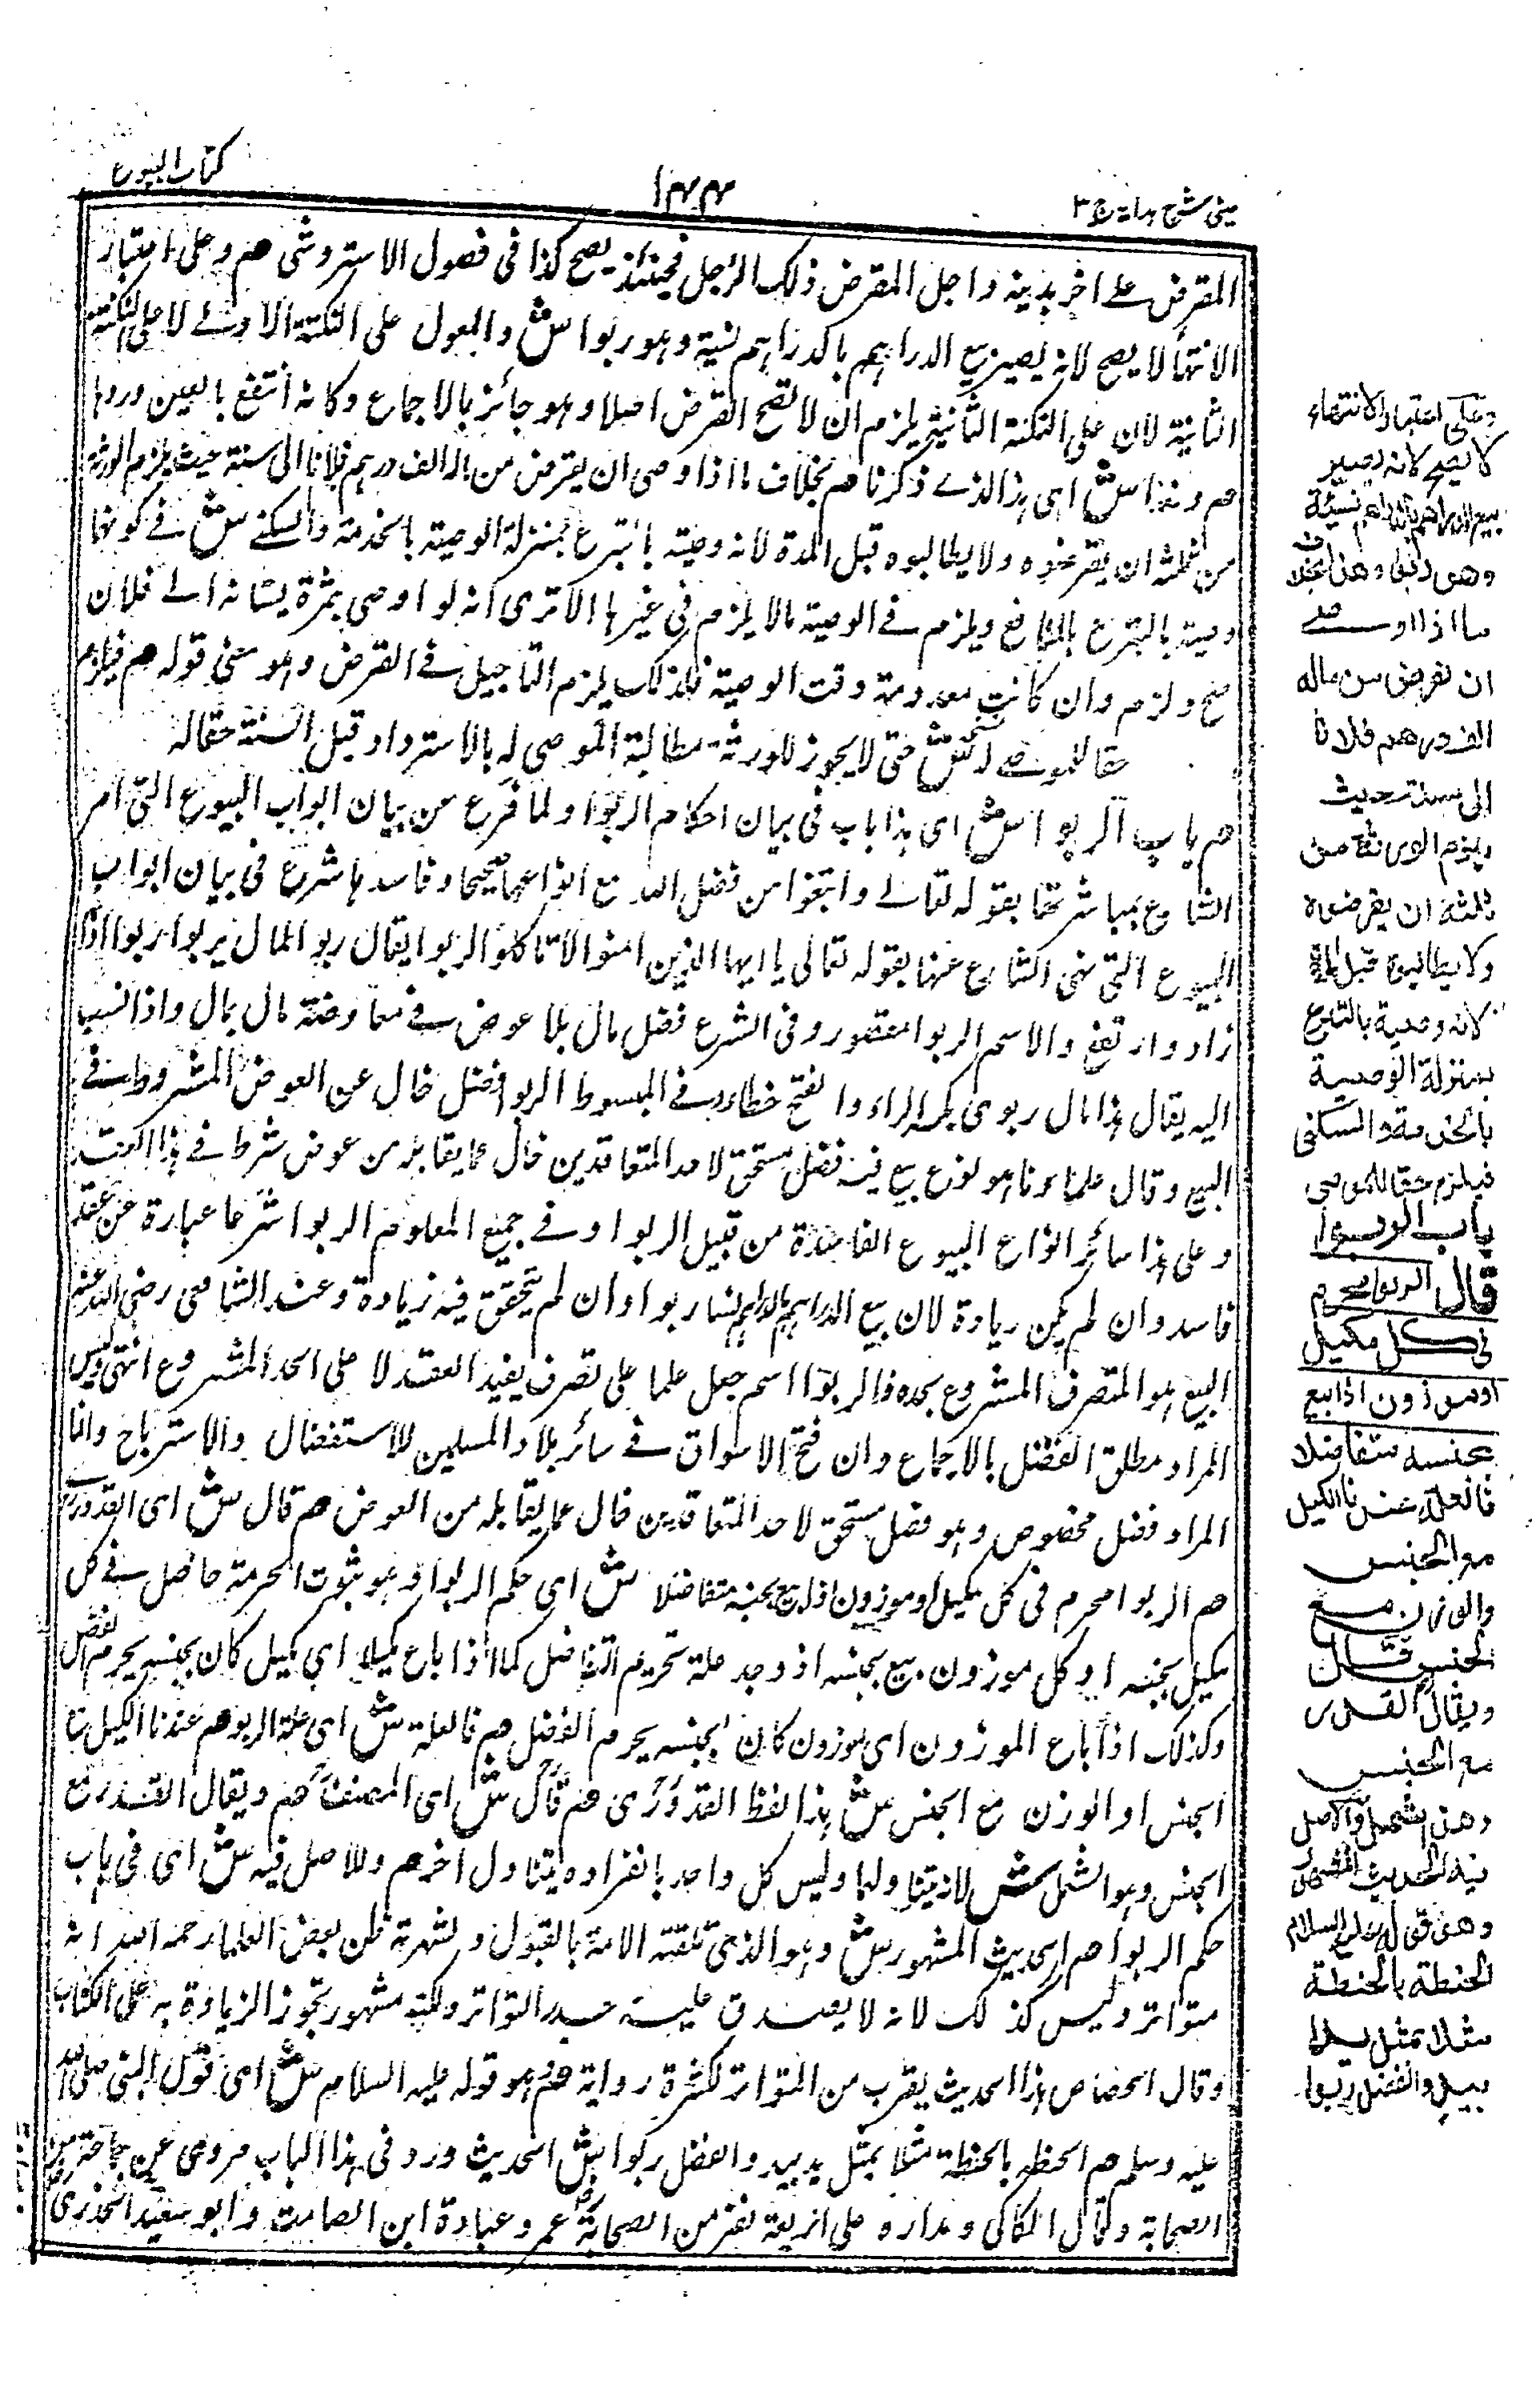 عینی شرح ہدایہ ج ۳
۱۴۴
كتاب البيوع
المقرض على اخر بدينه واجل المقرض ذلك الرجل فحينئذ يصح كذا فى فصول الاستروشنى هم وعلى اعتبار
الانتهاء لا يصح لانه يصير بيع الدراهم بالدراهم نسية وهو ربوا ش والمعول على النكتة الاولے لا على النكتة
الثانية لان على النكتة الثانية يلزم ان لا تصح القرض اصلا وهو جائز بالاجماع وكانه انتفع بالعين وردها
هم وهذا ش اى هذا الذے ذكرنا هم بخلاف ما اذا اوصى ان يقرض من ماله الف درهم فلانا الى سنة حيث يلزم الورثة
من ثلثه ان يقرضوه ولا يطالبوه قبل المدة لانه وصية بالتبرع بمنزلة الوصية بالخدمة والسكنے ش فے كونها
وصية بالتبرع بالمنافع ويلزم فے الوصية مالا يلزم فى غيرها الا ترى انه لو اوصى بثمرة بستانه الے فلان
صح ولزم وان كانت معدومة وقت الوصية فلذلك يلزم التاجيل فے القرض وهو معنى قوله هم فيلزم
حقا للموصے له ش حتى لا يجوز للورثة مطالبة الموصى له بالاسترداد قبل السنة حقا له
هم باب الربوا ش اى هذا باب فى بيان احكام الربوا ولما فرغ عن بيان ابواب البيوع التى امر
الشارع بمباشرتها بقوله تعالے وابتغوا من فضل الله مع انواعها صحيحا وفاسدها شرع فى بيان ابواب
البيوع التى نهى الشارع عنها بقوله تعالى يا ايها الذين امنوا لا تاكلوا الربوا يقال ربو المال يربوا ربوا اذا
زاد وارتفع والاسم الربوا مقصور وفى الشرع فضل مال بلا عوض فے معاوضة مال بمال واذا نسب
اليه يقال هذا مال ربوى بكسر الراء والفتح خطاء وفے المبسوط الربوا فضل خال عن العوض المشروط فے
البيع وقال علماؤنا هو نوع بيع فيه فضل مستحق لاحد المتعاقدين خال عما يقابله من عوض شرط فے هذا العقد
وعلى هذا سائر انواع البيوع الفاسدة من قبيل الربوا وفے جميع العلوم الربوا شرعا عبارة عن عقد
فاسد وان لم يكن زيادة لان بيع الدراهم بالدراهم نساء ربوا وان لم يتحقق فيه زيادة وعند الشافعى رضى الله عنه
البيع هو التصرف المشروع بحده والربوا اسم جعل علما على تصرف يفيد العقد لا على الحد المشروع انتهى وليس
المراد مطلق الفضل بالاجماع وان فتح الاسواق فے سائر بلاد المسلمين للاستفضال والاسترباح وانما
المراد فضل مخصوص وهو فضل مستحق لاحد المتعاقدين خال عما يقابله من العوض هم قال ش اى القدورى
هم الربوا محرم فى كل مكيل او موزون اذا بيع بجنسه متفاضلا ش اى حكم الربوا وهو ثبوت الحرمة حاصل فے كل
مكيل بجنسه او كل موزون بيع بجنسه اذ وجد علة تحريم التفاضل كما اذا باع مكيلا اى مكيل كان بجنسه يحرم الفضل
وكذلك اذا باع الموزون اى موزون كان بجنسه يحرم الفضل هم فالعلة ش اى علة الربو هم عندنا الكيل مع
الجنس او الوزن مع الجنس ش هذا لفظ القدورى هم قال ش اى المصنف هم ويقال القدر مع
الجنس وهو اشمل ش لانه يتناولهما وليس كل واحد بانفراده يتناول اخر هم والاصل فيه ش اى فى باب
حكم الربوا هم الحديث المشهور ش وهو الذى تلقته الامة بالقبول ولشهرته ظن بعض العلماء رحمه الله انه
متواتر وليس كذلك لانه لا يصدق عليه حد التواتر ولكنه مشهور تجوز الزيادة به على الكتاب
وقال الخصاص هذا الحديث يقرب من المتواتر لكثرة رواية هم وهو قوله عليه السلام ش اى قول النبى صلى الله
عليه وسلم هم الحنطة بالحنطة مثلا بمثل يد بيد والفضل ربوا ش الحديث ورد فى هذا الباب مروى عن جماعة من
الصحابة وقال الكاكى ومداره على اربعة نفر من الصحابة عمر وعبادة ابن الصامت وابو سعيد الخدرى
وعلى اعتبار الانتهاء
لا يصح لانه يصير
بيع الدراهم بالدراهم نسيئة
وهو ربوا وهذا بخلاف
ما اذا اوصے
ان يقرض من ماله
الف درهم فلانا
الى سنة حيث
يلزم الورثة من
ثلثه ان يقرضوه
ولا يطالبوه قبل المدة
لانه وصية بالتبرع
بمنزلة الوصية
بالخدمة والسكنى
فيلزم حقا للموصى
باب الربوا
قال الربوا محرم
فى كل مكيل
او موزون اذا بيع
بجنسه متفاضلا
فالعلة عندنا الكيل
مع الجنس
والوزن مع
الجنس قال
ويقال القدر
مع الجنس
وهو اشمل والاصل
فيه الحديث المشهور
وهو قوله عليه السلام
الحنطة بالحنطة
مثلا بمثل يدا
بيد والفضل ربوا